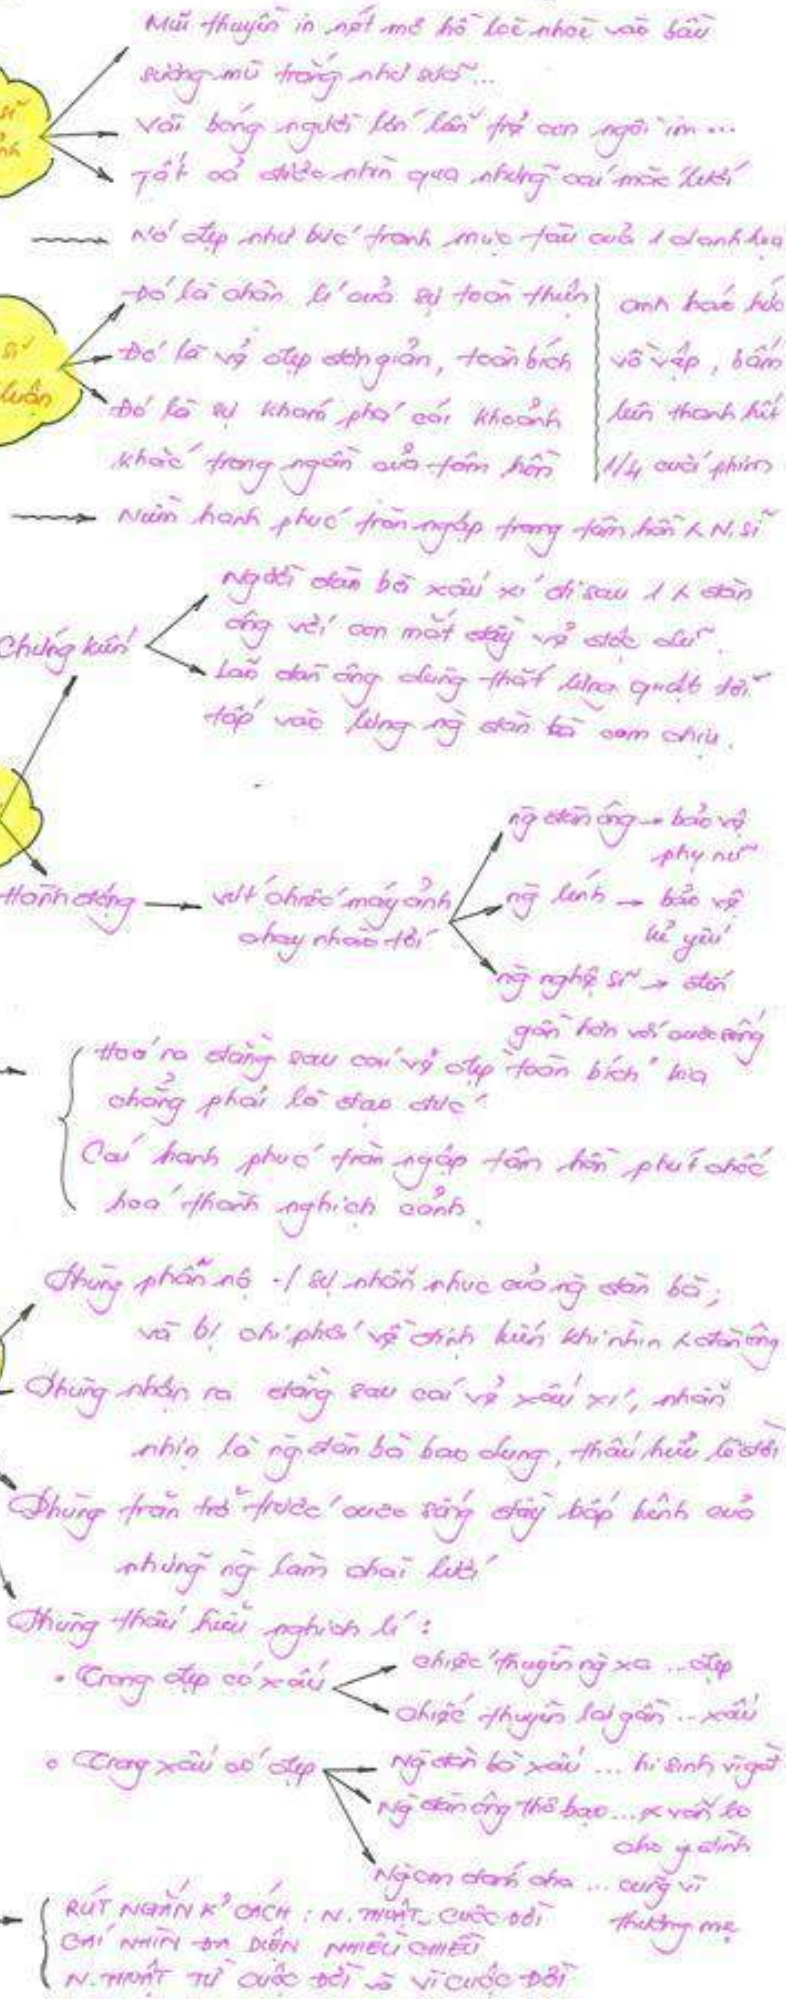 Mũi thuyền in nét mơ hồ loè nhoè vào bầu
sương mù trắng như sữa...
sĩ
Vài bóng người lớn lẫn trẻ con ngồi im...
Tất cả được nhìn qua những cái mắc lưới
Nó đẹp như bức tranh mực tàu của 1 danh hoạ
Đó là chân lí của sự toàn thiện
anh bấm
sĩ
Đó là vẻ đẹp đơn giản, toàn bích
vồ vập, bấm
luận
Đó là sự khám phá cái khoảnh
liên thanh hết
khắc trong ngần của tâm hồn
1/4 cuối phim
Niềm hạnh phúc tràn ngập trong tâm hồn N. sĩ
Người đàn bà xấu xí đi sau 1 đàn
Chứng kiến
ông với con mắt đầy vẻ độc dữ.
Lão đàn ông dùng thắt lưng quật tới
tấp vào lưng ng đàn bà cam chịu.
ng đàn ông → bảo vệ
phụ nữ
Hành động → vứt chiếc máy ảnh
ng lính → bảo vệ
chạy nhào tới
kẻ yếu
ng nghệ sĩ → đến
gần hơn với cuộc sống
Hoá ra đằng sau cái vẻ đẹp "toàn bích" kia
chẳng phải là đạo đức
Cái hạnh phúc tràn ngập tâm hồn phút chốc
hoá thành nghịch cảnh.
Phùng phẫn nộ -/ sự nhẫn nhục của ng đàn bà;
và bị chi phối về định kiến khi nhìn đàn ông
Phùng nhận ra đằng sau cái vẻ xấu xí, nhẫn
nhịn là ng đàn bà bao dung, thấu hiểu lẽ đời
Phùng trăn trở trước cuộc sống đầy bấp bênh của
những ng làm chài lưới
Phùng thấu hiểu nghịch lí:
• Trong đẹp có xấu
chiếc thuyền ng xa ... đẹp
chiếc thuyền lại gần ... xấu
• Trong xấu có đẹp
Ng đàn bà xấu ... hi sinh vì gđ
Ng đàn ông thô bạo ... vẫn lo
cho gđình
Ng con đánh cha ... cũng vì
thương mẹ
RÚT NGẮN K/ CÁCH : N.THUẬT - CUỘC ĐỜI
CÁI NHÌN ĐA DIỆN NHIỀU CHIỀU
N.THUẬT TỪ CUỘC ĐỜI và VÌ CUỘC ĐỜI